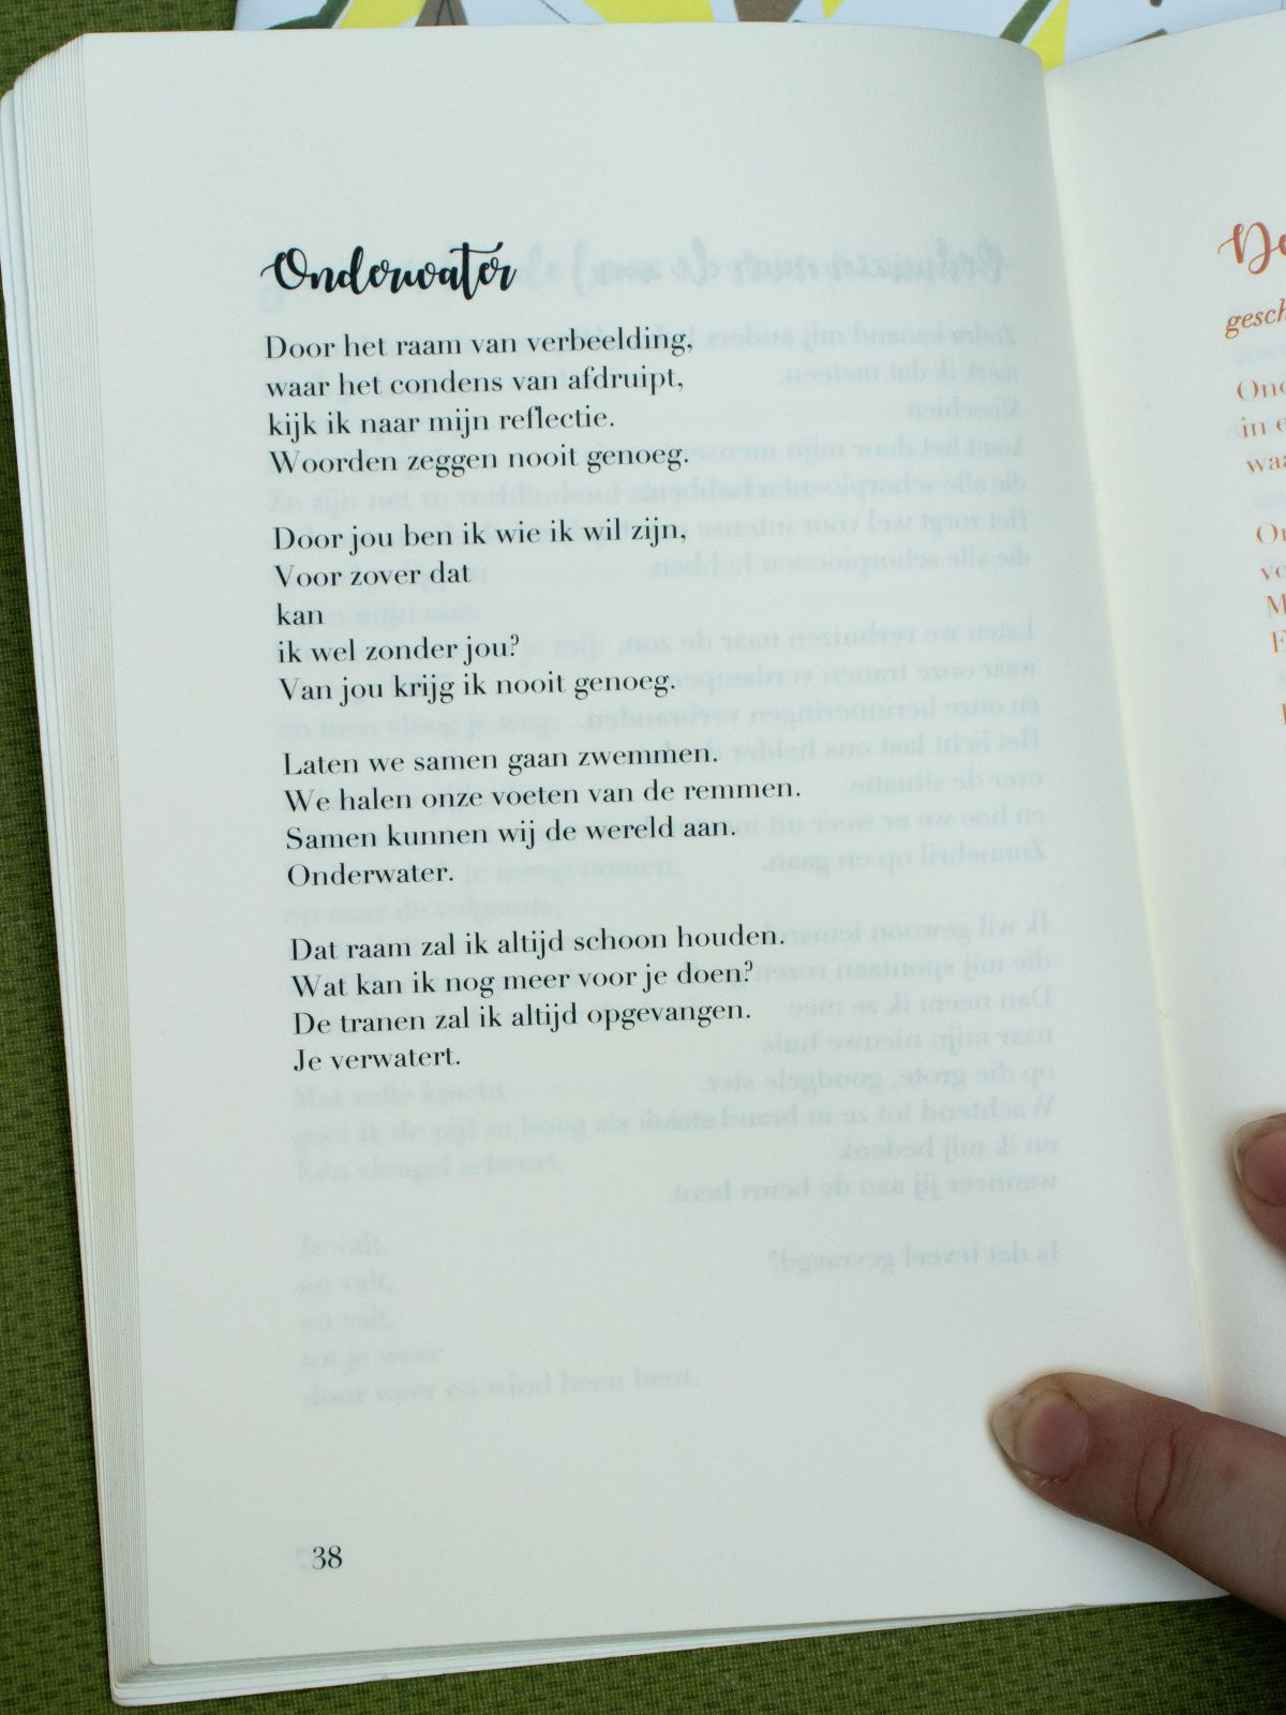 Onderwater
Door het raam van verbeelding,
waar het condens van afdruipt,
kijk ik naar mijn reflectie.
Woorden zeggen nooit genoeg.
Door jou ben ik wie ik wil zijn,
Voor zover dat
kan
ik wel zonder jou?
Van jou krijg ik nooit genoeg.
Laten we samen gaan zwemmen.
We halen onze voeten van de remmen.
Samen kunnen wij de wereld aan.
Onderwater.
Dat raam zal ik altijd schoon houden.
Wat kan ik nog meer voor je doen?
De tranen zal ik altijd opgevangen.
Je verwatert.
38